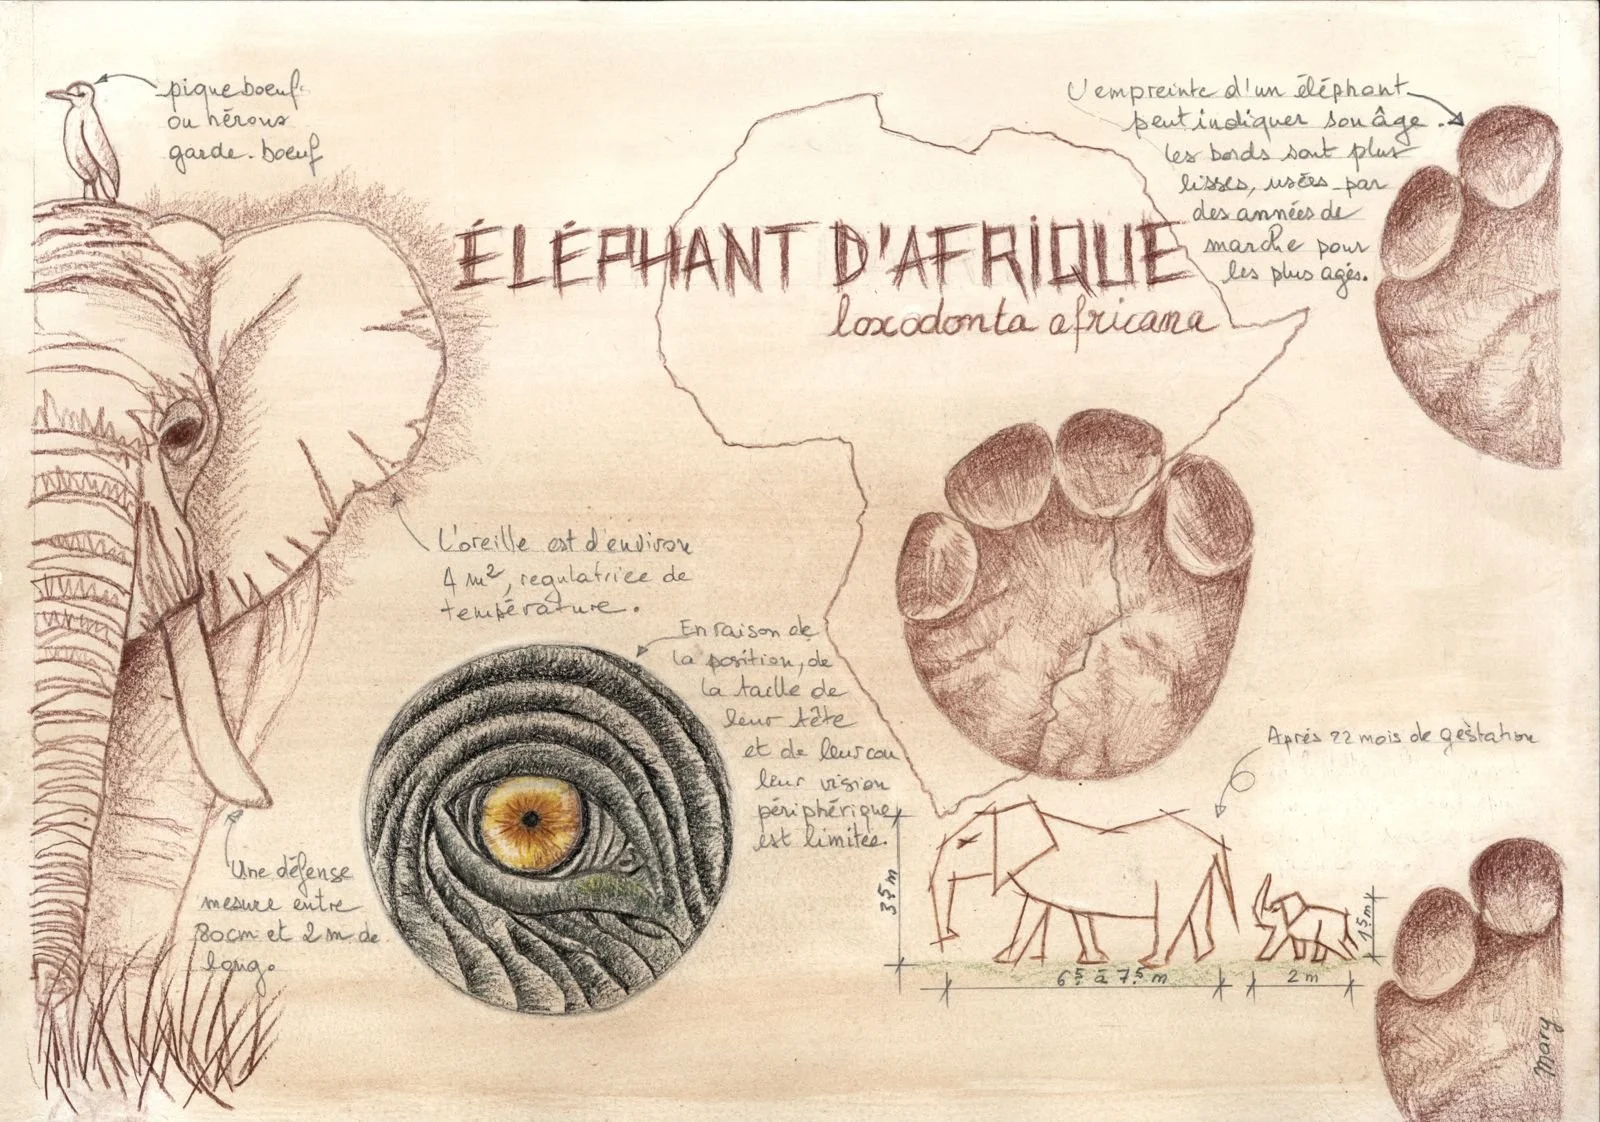 pique boeuf
ou hérons
garde-boeuf
L'empreinte d'un éléphant
peut indiquer son âge.
les bords sont plus
lisses, usées par
des années de
marche pour
les plus agés.
ÉLÉPHANT D'AFRIQUE
loxodonta africana
L'oreille est d'environ
4 m², regulatrice de
température.
En raison de
la position, de
la taille de
leur tête
et de leur cou
leur vision
périphérique
est limitée.
Après 22 mois de gèstation
Une défense
mesure entre
80cm et 2 m de
long.
3,5 m
1,5 m
6,5 à 7,5 m
2 m
Mary